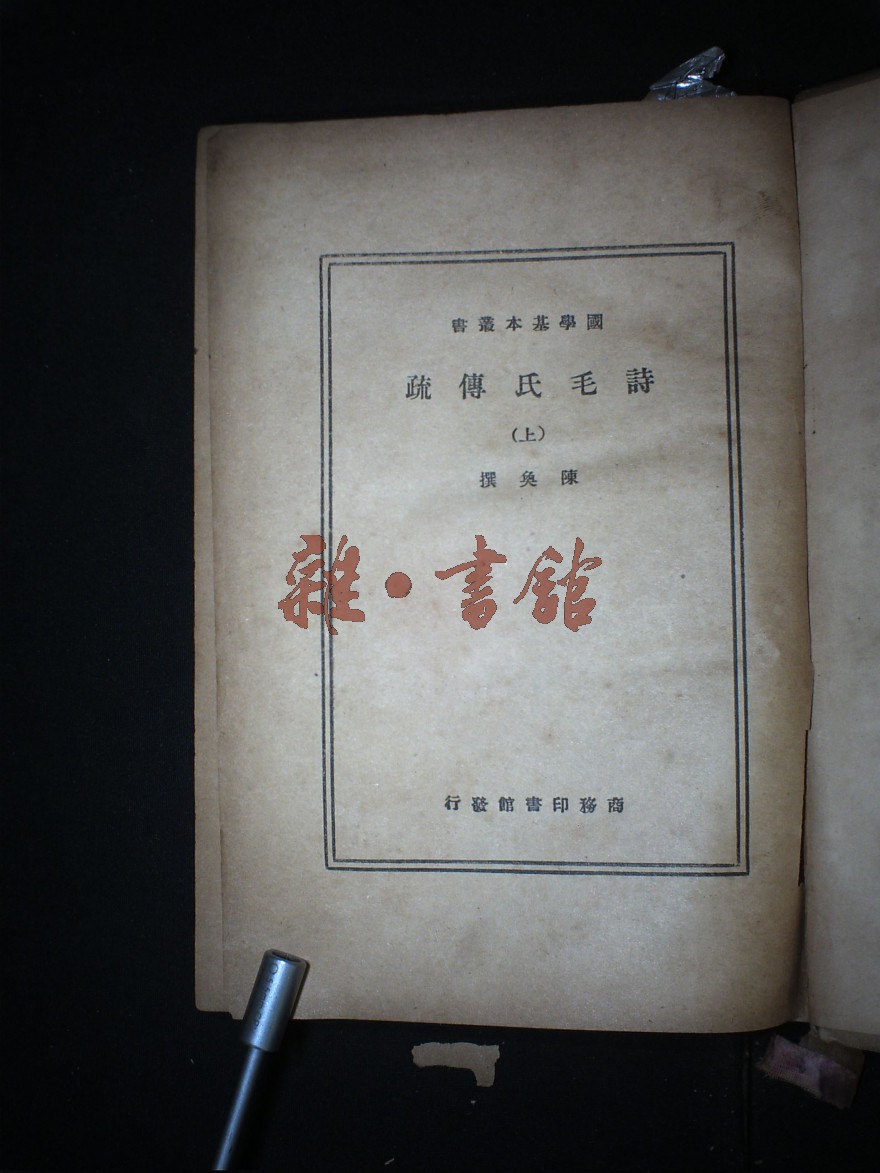 國學基本叢書
詩毛氏傳疏
(上)
陳奐撰
雜·書館
商務印書館發行